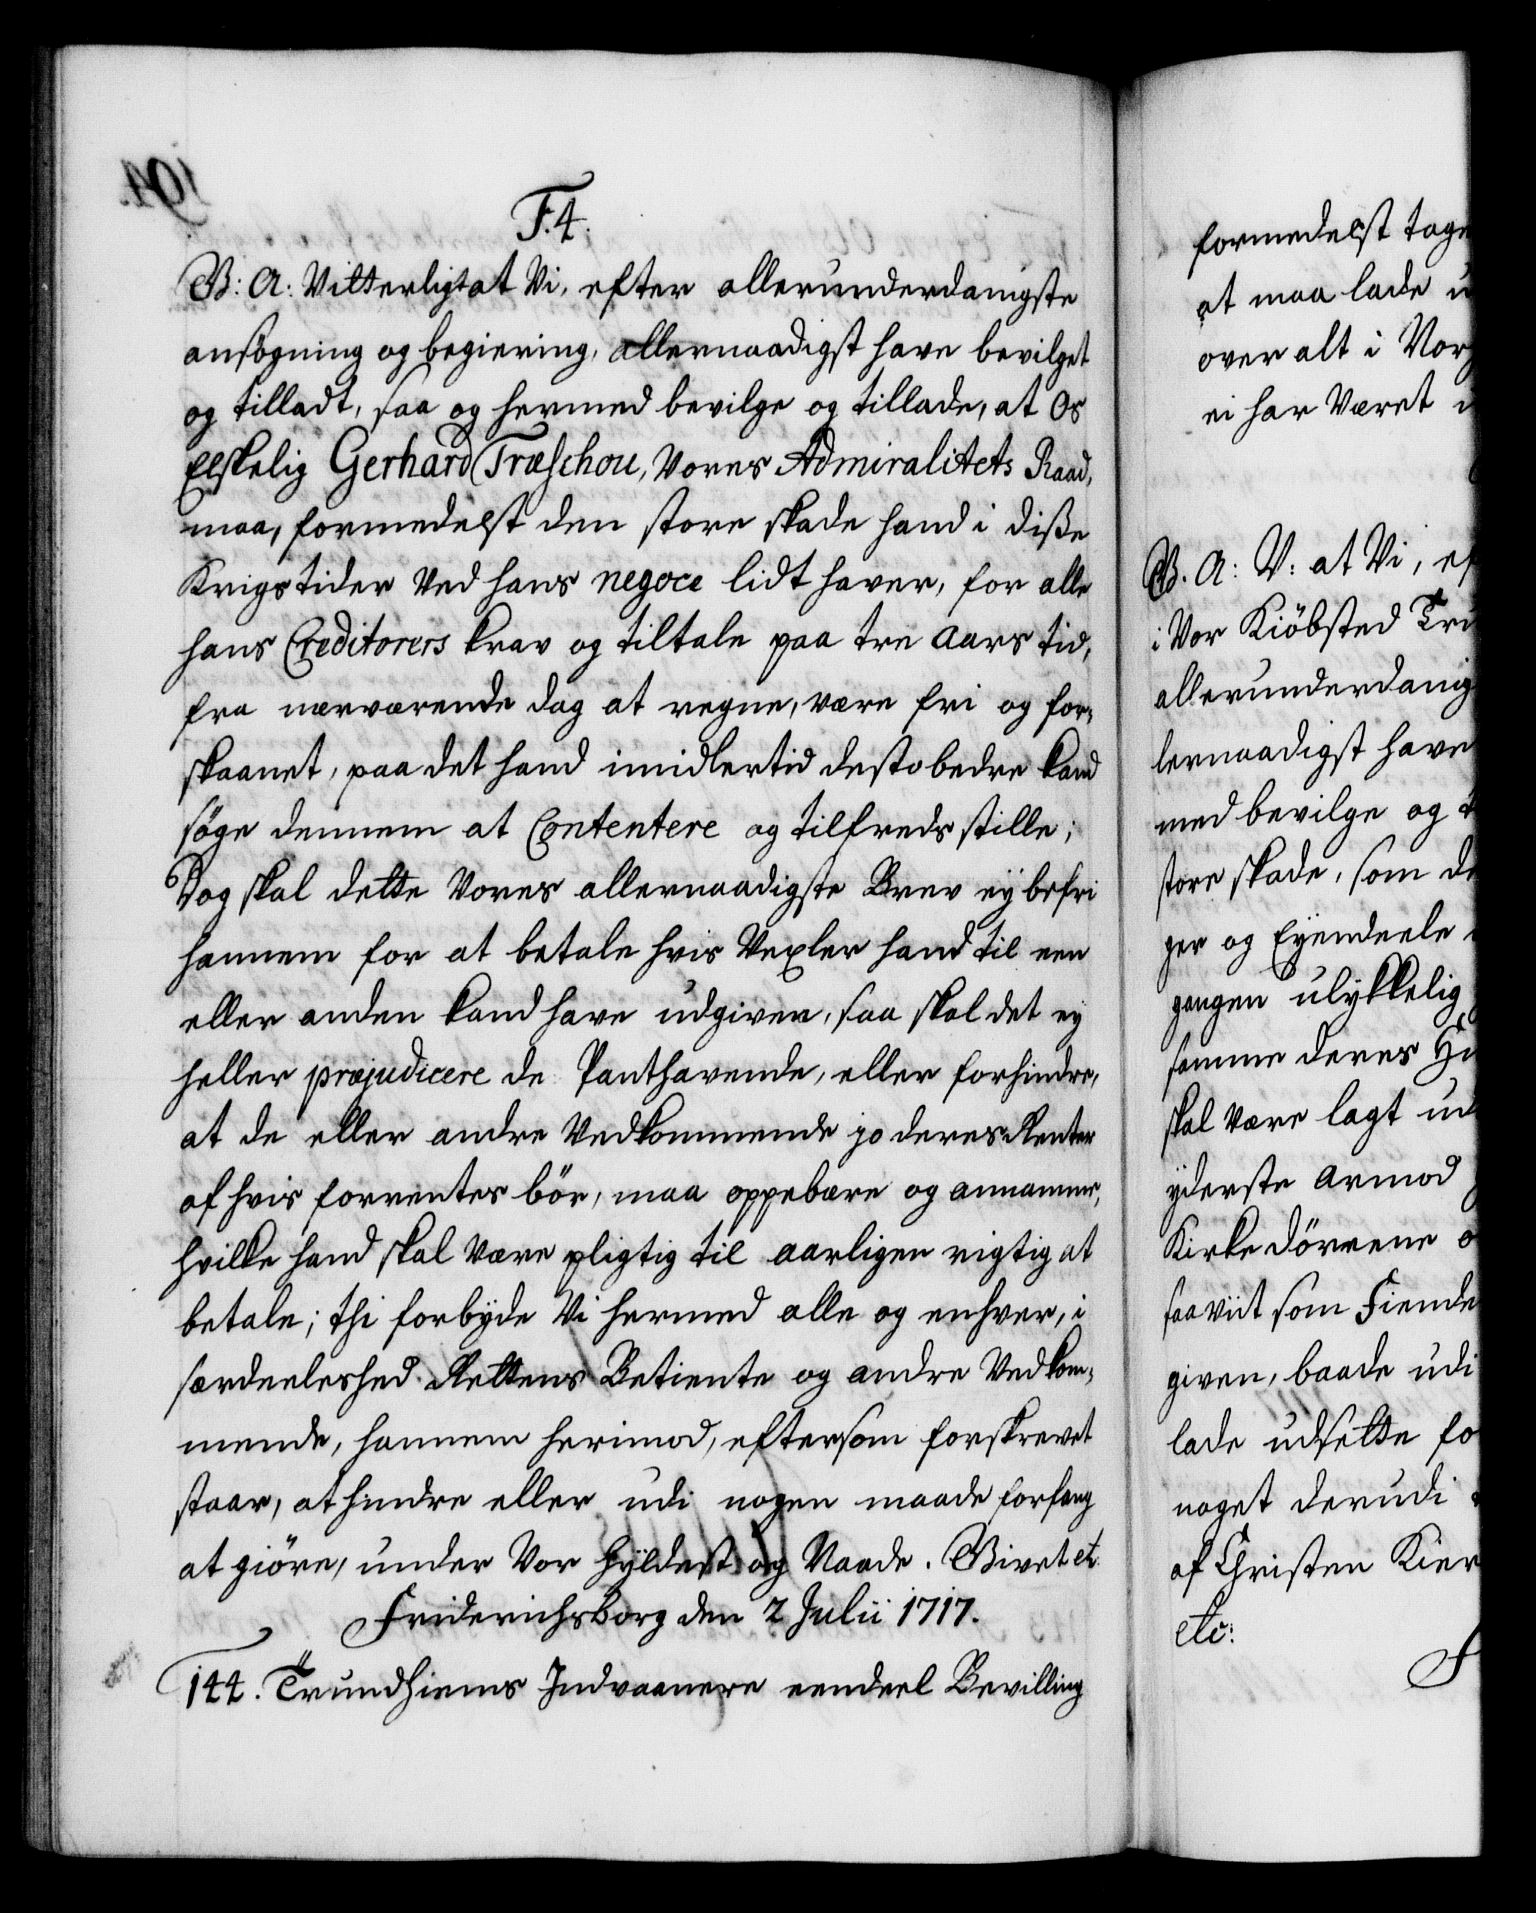 F. 4.
G: A: Vitterligt at Vi, efter allerunderdanigste
ansögning og begiering, allernaadigst have bevilget
og tilladt, saa og hermed bevilge og tillade, at Os
Elskelig Gerhard Træschou, Vores Admiralitets Raad,
maa, formedelst den store skade hand i diße
Krigs tider Ved hans negoce lidt haver, for alle
hans Creditorers krav og tiltale paa tre Aars tid,
fra nærværende dag at regne, være fri og for-
skaanet, paa det hand imidlertid desto bedre kand
söge dennem at Contentere og tilfreds stille;
Dog skal dette Vores allernaadigste Brev ey befri
hannem for at betale hvis Vexler hand til een
eller anden kand have udgiven, saa skal det ey
heller præjudicere de Panthavende, eller forhindre,
at de eller andre Vedkommende jo deres Renter
af hvis forrentes bör, maa oppebære og annamme,
hvilke hand skal være pligtig til aarligen rigtig at
betale; thi forbyde Vi hermed alle og enhver, i
særdeeleshed Rettens Betiente og andre Vedkom-
mende, hannem herimod, eftersom forskrevet
staar, at hindre eller udi nogen maade forfang
at giöre, under Vor Hyldest og Naade. Givet etc:
Friderichsborg den 2 Julii 1717.
144. Trundhiems Indvaanere eendeel Bevilling
formedelst tage
at maa lade
over alt i Vor
ei har Været
G. A: V: at Vi, ef
i Vor Kiöbsted Tru
allerunderdanig
lernaadigst have
med bevilge og t
store skade, som de
ger og Eyendeele
gangen ulykkelig
samme deres H
skal være lagt ud
yderste Armod
Kirkedörrene o
saaviit som Fiende
given, baade udi
lade udsette fo
noget derudi
af Christen Kier
etc:
F